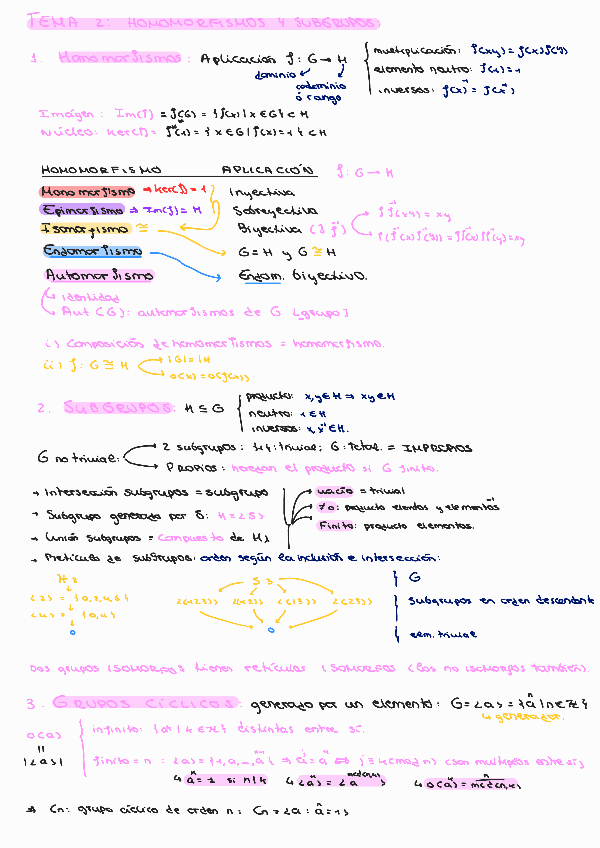 TEMA 2: HOMOMORFISMOS Y SUBGRUPOS
1. Homomorfismos: Aplicación f: G → H
dominio
codominio
ó rango
multiplicación: f(xy) = f(x)f(y)
elemento neutro: f(1) = 1
inversos: f(x)⁻¹ = f(x⁻¹)
Imágen: Im(f) = f(G) = {f(x) | x ∈ G} < H
Núcleo: Ker(f) = f⁻¹(1) = {x ∈ G | f(x) = 1} < H
HOMOMORFISMO APLICACIÓN f: G → H
Monomorfismo ⇒ Ker(f) = 1 Inyectiva
Epimorfismo ⇒ Im(f) = H Sobreyectiva
Isomorfismo ≅ Biyectiva (∃ f⁻¹)
f f⁻¹(xy) = xy
f(f⁻¹(x)f⁻¹(y)) = ff⁻¹(x)ff⁻¹(y) = xy
Endomorfismo G = H y G ≅ H
Automorfismo Endom. biyectivo.
Identidad
Aut(G): automorfismos de G [grupo]
i) Composición de homomorfismos = homomorfismo.
ii) f: G ≅ H
|G| = |H
o(x) = o(f(x))
2. SUBGRUPOS: H ≤ G
producto: x,y ∈ H ⇒ xy ∈ H
neutro: 1 ∈ H
inversos: x, x⁻¹ ∈ H.
G no trivial:
2 subgrupos: {1}: trivial; G: Total. = IMPROPIOS
PROPIOS: heredan el producto si G finito.
→ Intersección subgrupos = subgrupo
→ Subgrupo generado por S: H = <S>
→ Unión subgrupos = compuesto de Hi
vacío = trivial
≠∅: producto elemtos y elementos⁻¹
Finito: producto elementos.
→ Retículo de subgrupos: orden según la inclusión e intersección:
<2> = {0,2,4,6}
<4> = {0,4}
0
S3
<(123)> <(12)> <(13)> <(23)>
0
G
Subgrupos en orden descendente
elem. trivial
Dos grupos ISOMORFOS tienen retículos ISOMORFOS (los no isomorfos también).
3. GRUPOS CÍCLICOS: generado por un elemento: G = <a> = {aⁿ | n ∈ Z}
↳ generador.
o(a)
||
|<a>|
infinito: {aᵏ | k ∈ Z} distintas entre sí.
finito = n: <a> = {1, a, …, aⁿ⁻¹} ⇒ aʲ = aᵏ ⇔ j ≡ k (mod n) (son múltiplos entre sí)
↳ aᵏ = 1 si n|k ↳ <aᵏ> = <a^mcd(n,k)> ↳ o(aᵏ) = n/mcd(n,k)
⇒ Cn: grupo cíclico de orden n: Cn = <a : aⁿ = 1>